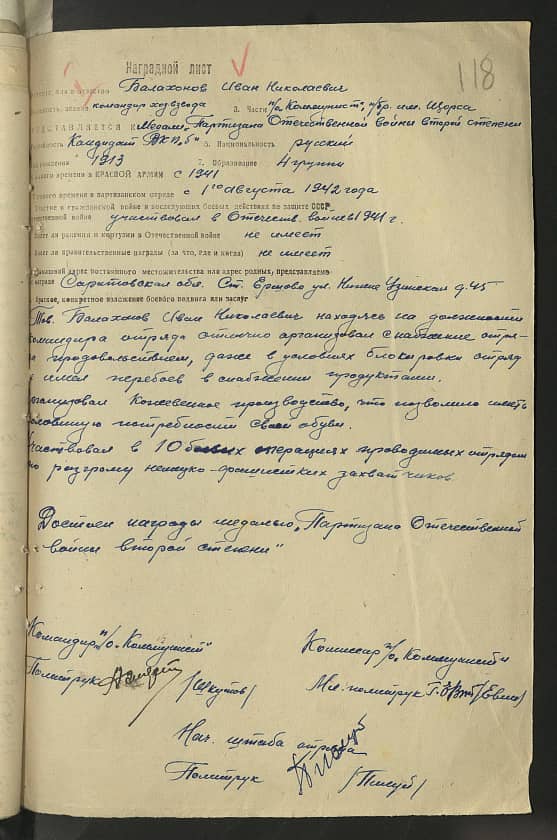 118
Наградной лист
Балахонов Иван Николаевич
звание командир хозвзвода 3. Части п/о "Коммунист", п/бр. им. Щорса
ПРЕДСТАВЛЯЕТСЯ к Медали "Партизана Отечественной войны второй степени
Кандидат ВКП "б" 5. Национальность русский
1913 7. Образование 4 группы
какого времени в КРАСНОЙ АРМИИ с 1941
какого времени в партизанском отряде с 1го августа 1942 года
Участие в гражданской войне и последующих боевых действиях по защите СССР
отечественной войне участвовал в Отечеств. войне 1941 г.
Имеет ли ранения и контузии в Отечественной войне не имеет
Имеет ли правительственные награды (за что, где и когда) не имеет
домашний адрес постоянного местожительства или адрес родных, представляемого
к награде Саратовская обл. Ст. Ершово ул. Узинская д. 45
Краткое, конкретное изложение боевого подвига или заслуг
Тов. Балахонов Иван Николаевич находясь на должности
командира отряда отлично организовал снабжение отря-
да продовольствием, даже в условиях блокировки отряд
имел перебоев в снабжении продуктами.
Кожевенное производство, что позволило иметь
потребность обуви.
Участвовал в 10 боевых операциях проводимых отрядом
по разгрому немецко-фашистких захватчиков.
Достоин награды медалью, "Партизана Отечественной
войны второй степени"
Командир п/о "Коммунист" Комиссар п/о "Коммунист"
Политрук Мл. политрук
Нач. штаба отряда
Политрук